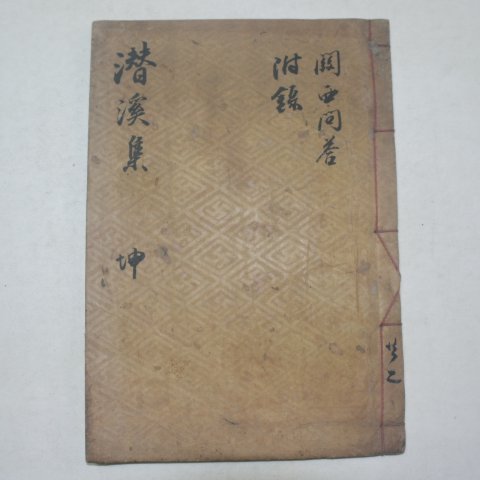 關西問答
附錄
潛溪集 坤
共二